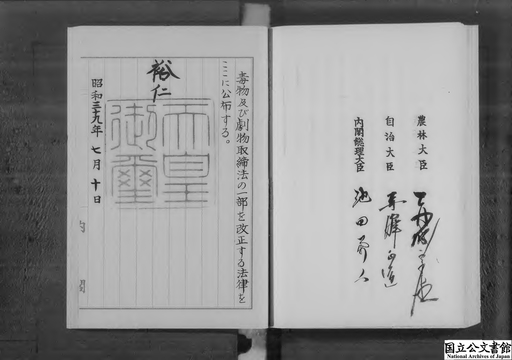 農林大臣
自治大臣 赤澤正道
内閣総理大臣 池田勇人
毒物及び劇物取締法の一部を改正する法律を
ここに公布する。
裕仁
天皇
御璽
昭和三十九年七月十日
内閣
国立公文書館
National Archives of Japan